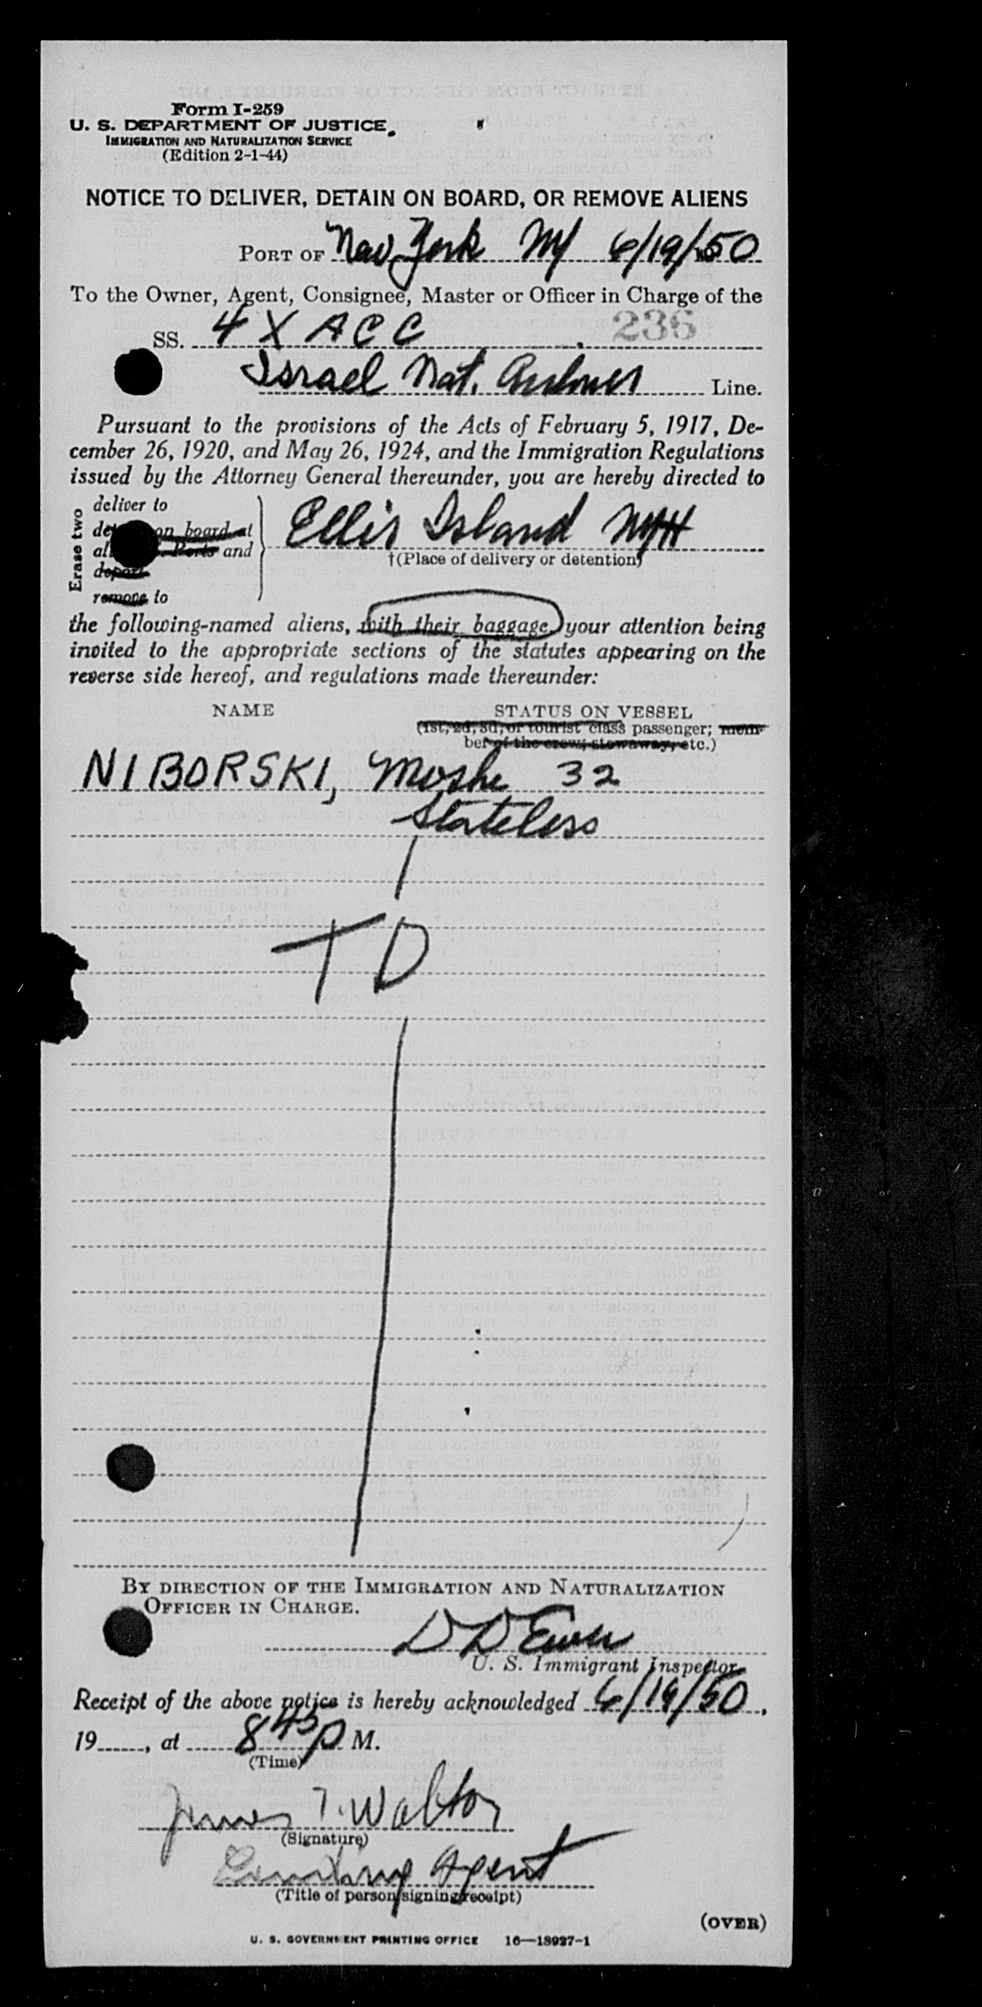 Form I-259
U. S. DEPARTMENT OF JUSTICE
IMMIGRATION AND NATURALIZATION SERVICE
(Edition 2-1-44)
NOTICE TO DELIVER, DETAIN ON BOARD, OR REMOVE ALIENS
PORT OF New York NY 6/19/50
To the Owner, Agent, Consignee, Master or Officer in Charge of the
SS. 4 X A C C 236
Israel Nat. Airlines Line.
Pursuant to the provisions of the Acts of February 5, 1917, De-
cember 26, 1920, and May 26, 1924, and the Immigration Regulations
issued by the Attorney General thereunder, you are hereby directed to
Erase two
deliver to
on board at
and
deport
remove to
Ellis Island NYH
†(Place of delivery or detention)
the following-named aliens, with their baggage, your attention being
invited to the appropriate sections of the statutes appearing on the
reverse side hereof, and regulations made thereunder:
NAME STATUS ON VESSEL
(1st, 2d, 3d, or tourist class passenger; mem-
ber of the crew; stowaway, etc.)
NIBORSKI, Moshe 32
Stateless
T D
BY DIRECTION OF THE IMMIGRATION AND NATURALIZATION
OFFICER IN CHARGE.
U. S. Immigrant Inspector.
Receipt of the above notice is hereby acknowledged 6/19/50,
19____, at 8 45 P M.
(Time)
James T. Walton
(Signature)
Agent
(Title of person signing receipt)
(OVER)
U. S. GOVERNMENT PRINTING OFFICE 16—18927-1